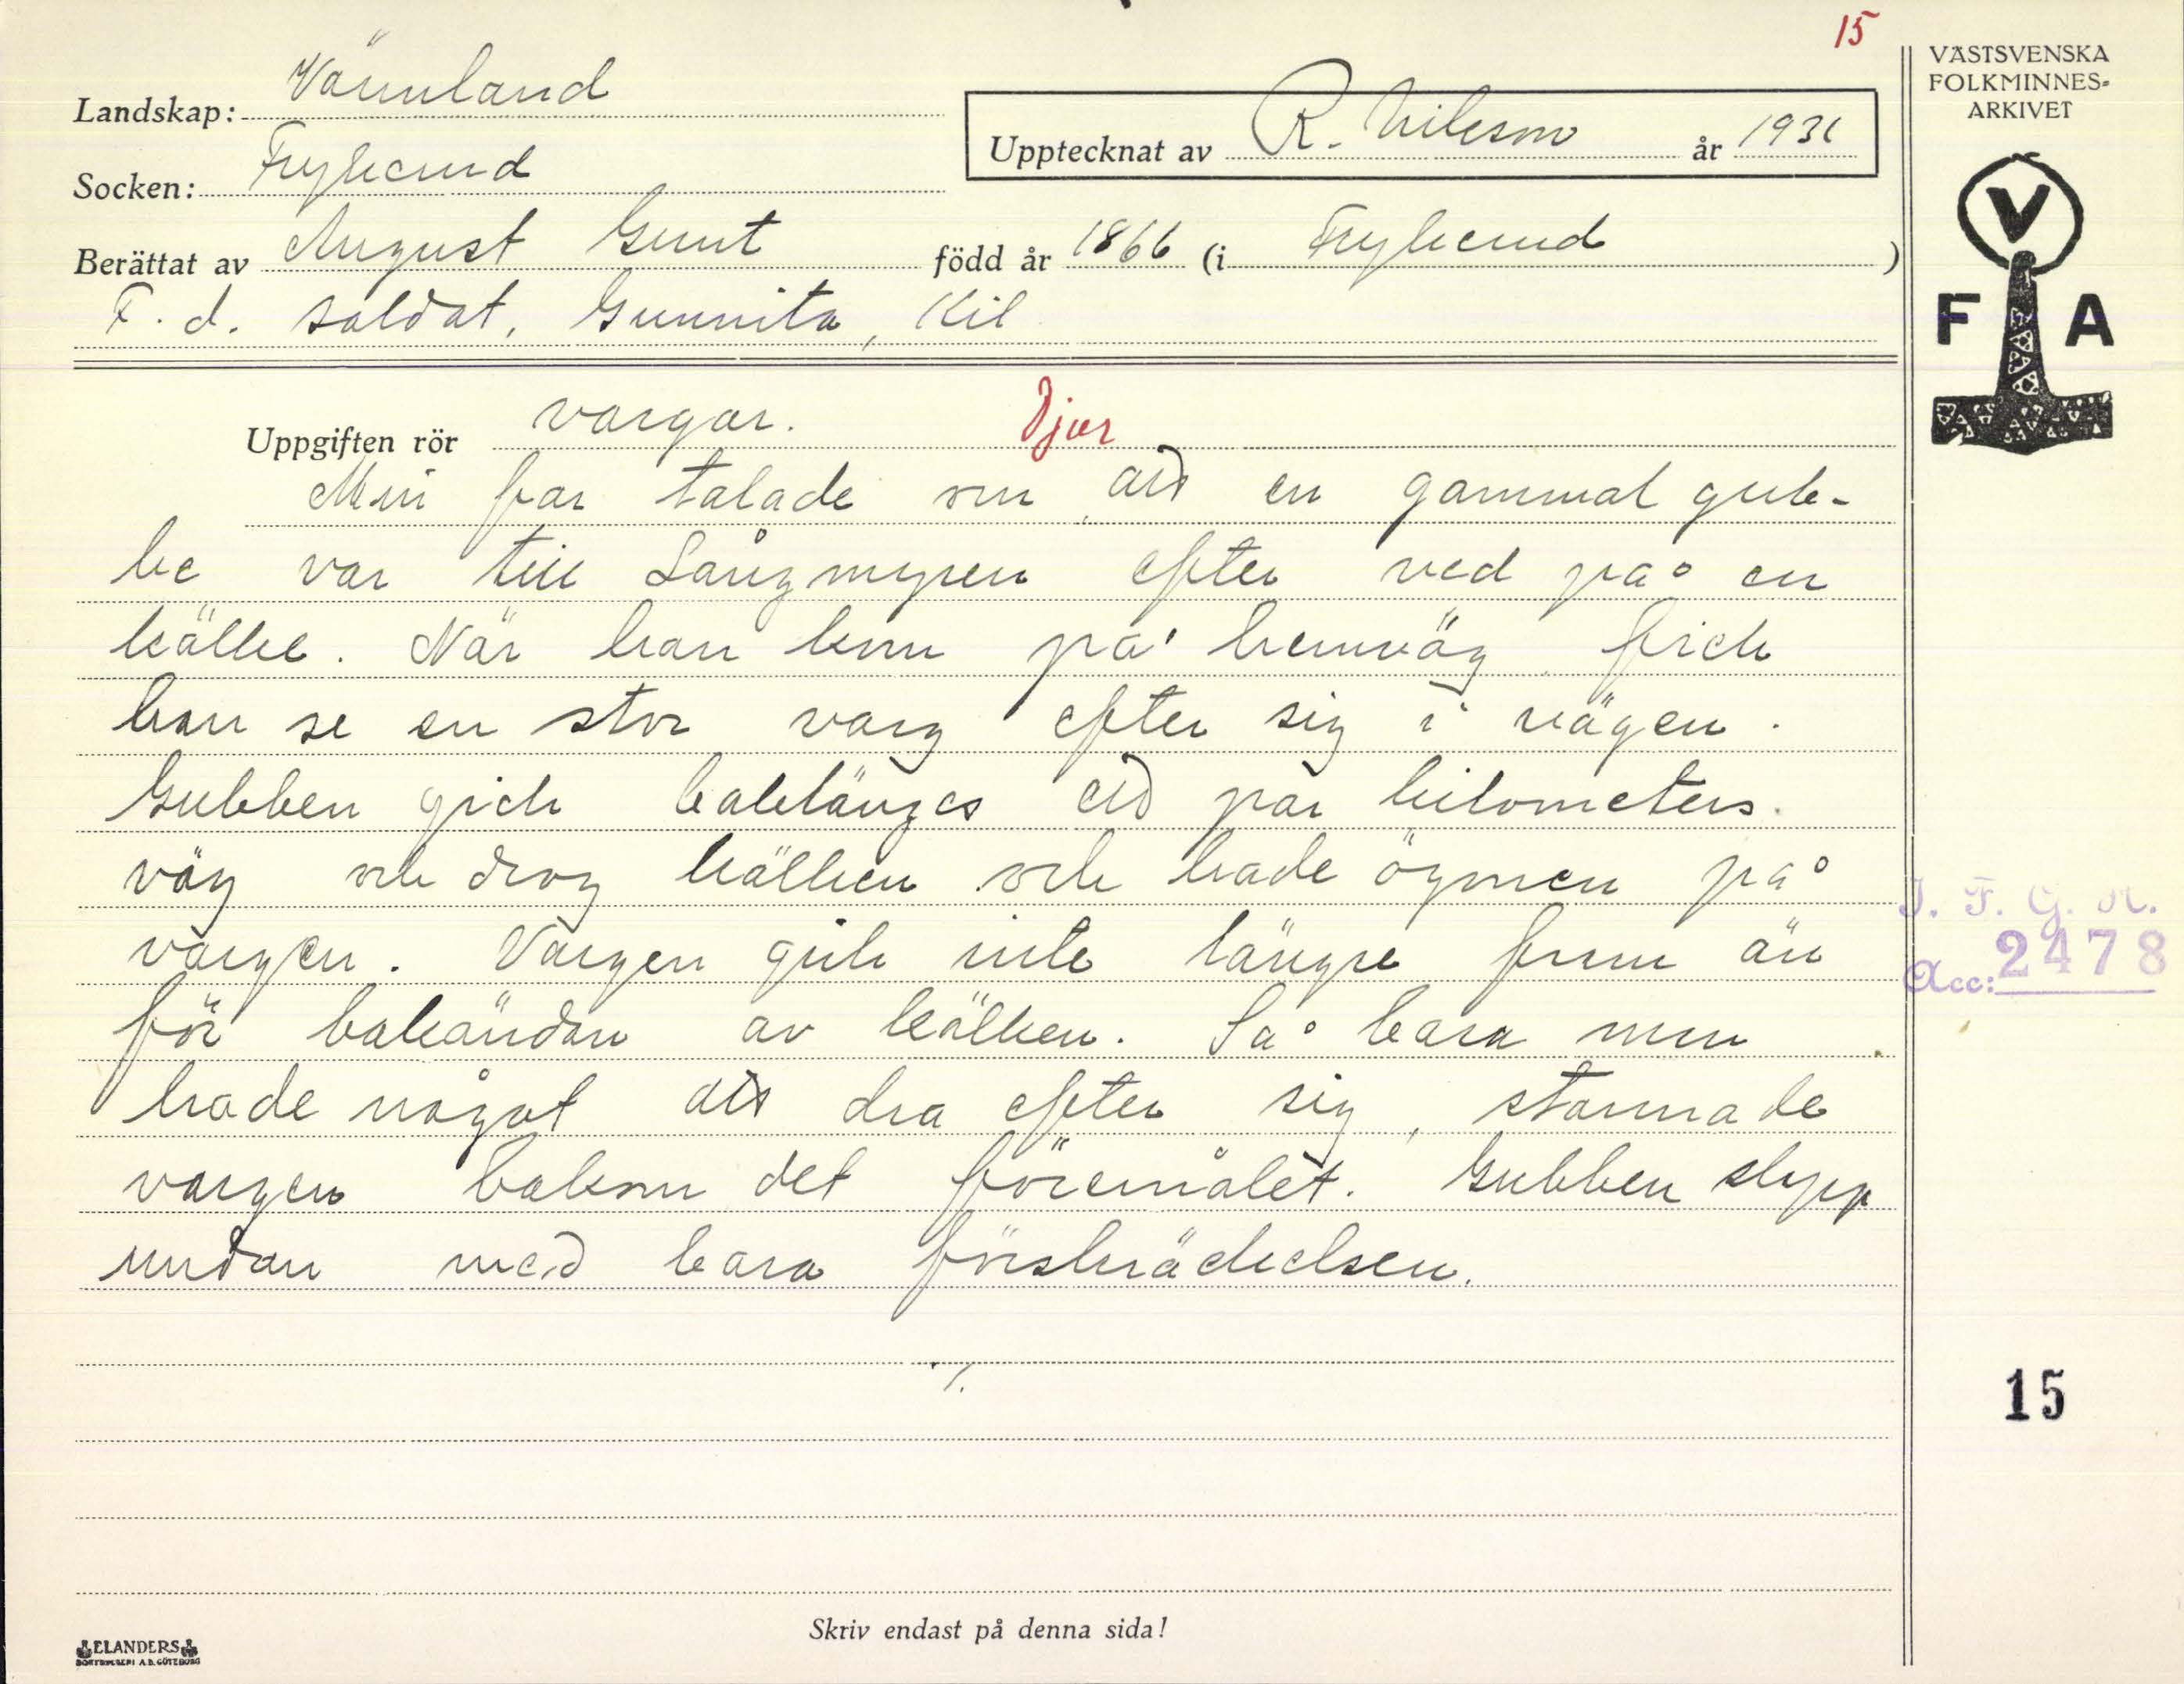 15
VÄSTSVENSKA
FOLKMINNES-
ARKIVET
Landskap: Värmland
Upptecknat av R. Nilsson år 1931
Socken: Frykerud
Berättat av August Gunt född år 1866 (i Frykerud)
F. d. soldat, Gunnita, Kil
V
F A
Uppgiften rör vargar. Djur
Min far talade om, att en gammal gub-
be var till Långmyren efter ved på en
kälke. När han kom på hemväg fick
han se en stor varg efter sig i vägen.
Gubben gick baklänges ett par kilometers
väg och drog kälken och hade ögonen på
vargen. Vargen gick inte längre fram än
för bakändan av kälken. Så bara man
hade något att dra efter sig, stannade
vargen bakom det föremålet. Gubben slapp
undan med bara förskräckelsen.
./.
I. F. G. H.
Acc: 2478
15
Skriv endast på denna sida!
ELANDERS
BOKTRYCKERI A.B. GÖTEBORG